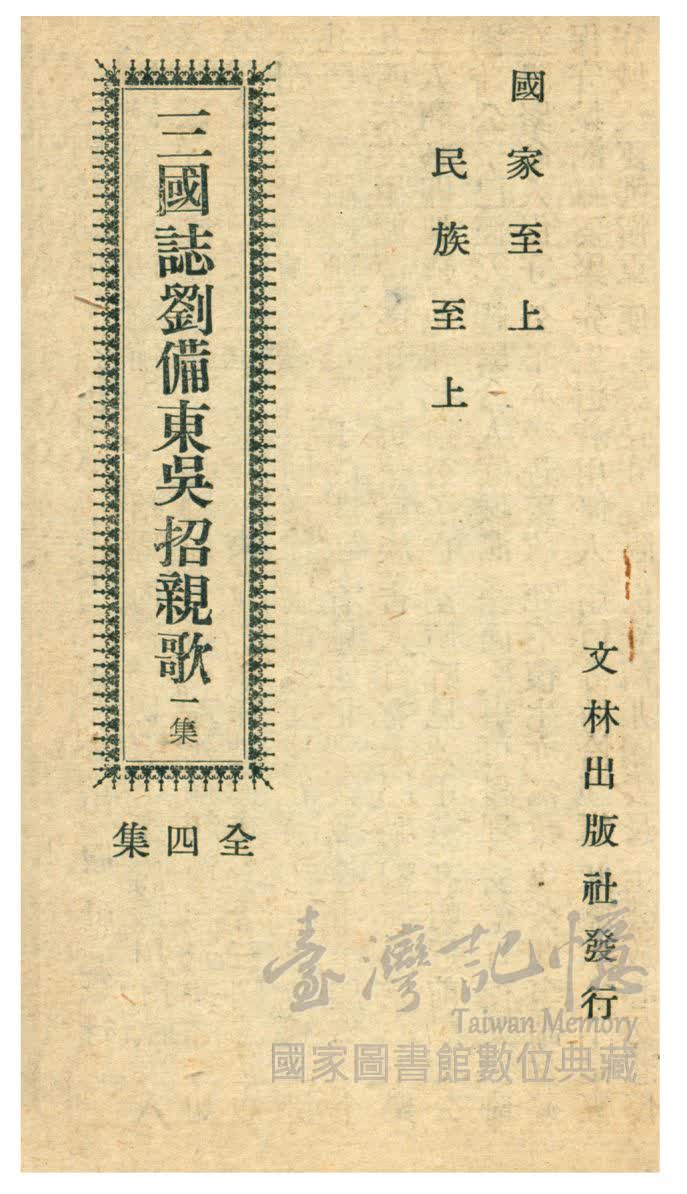 國家至上
民族至上
三國誌劉備東吳招親歌 一集
全四集
文林出版社發行
臺灣記憶
Taiwan Memory
國家圖書館數位典藏